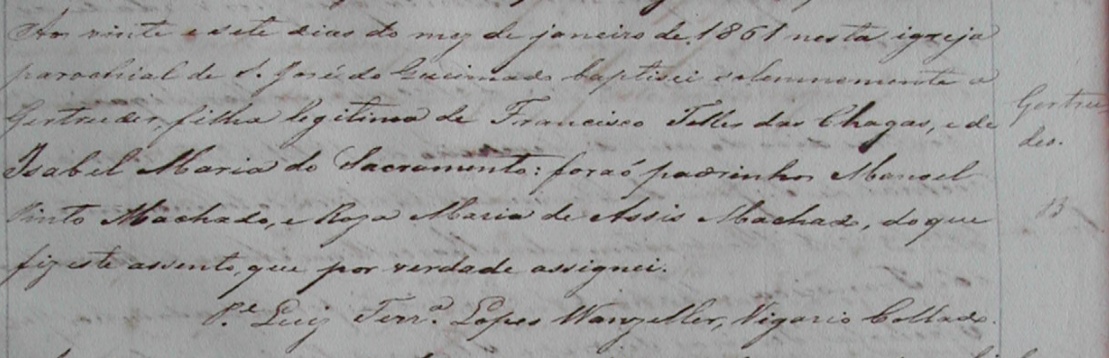 Aos vinte e sete dias do mez de janeiro de 1861 nesta igreja
parochial de S. José do Queimado baptisei solemnemente a
Gertrudes, filha legitima de Francisco Telles das Chagas, e de
Isabel Maria do Sacramento: foraõ padrinhos Manoel
Pinto Machado, e Roza Maria de Assis Machado, do que
fiz este assento, que por verdade assignei.
P.e Luiz Ferr.a Lopes Wanzeller, Vigario Collado.
Gertru
des.
13